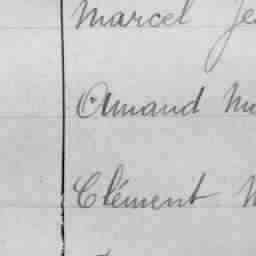 Marcel Je
Amand Ma
Clément M